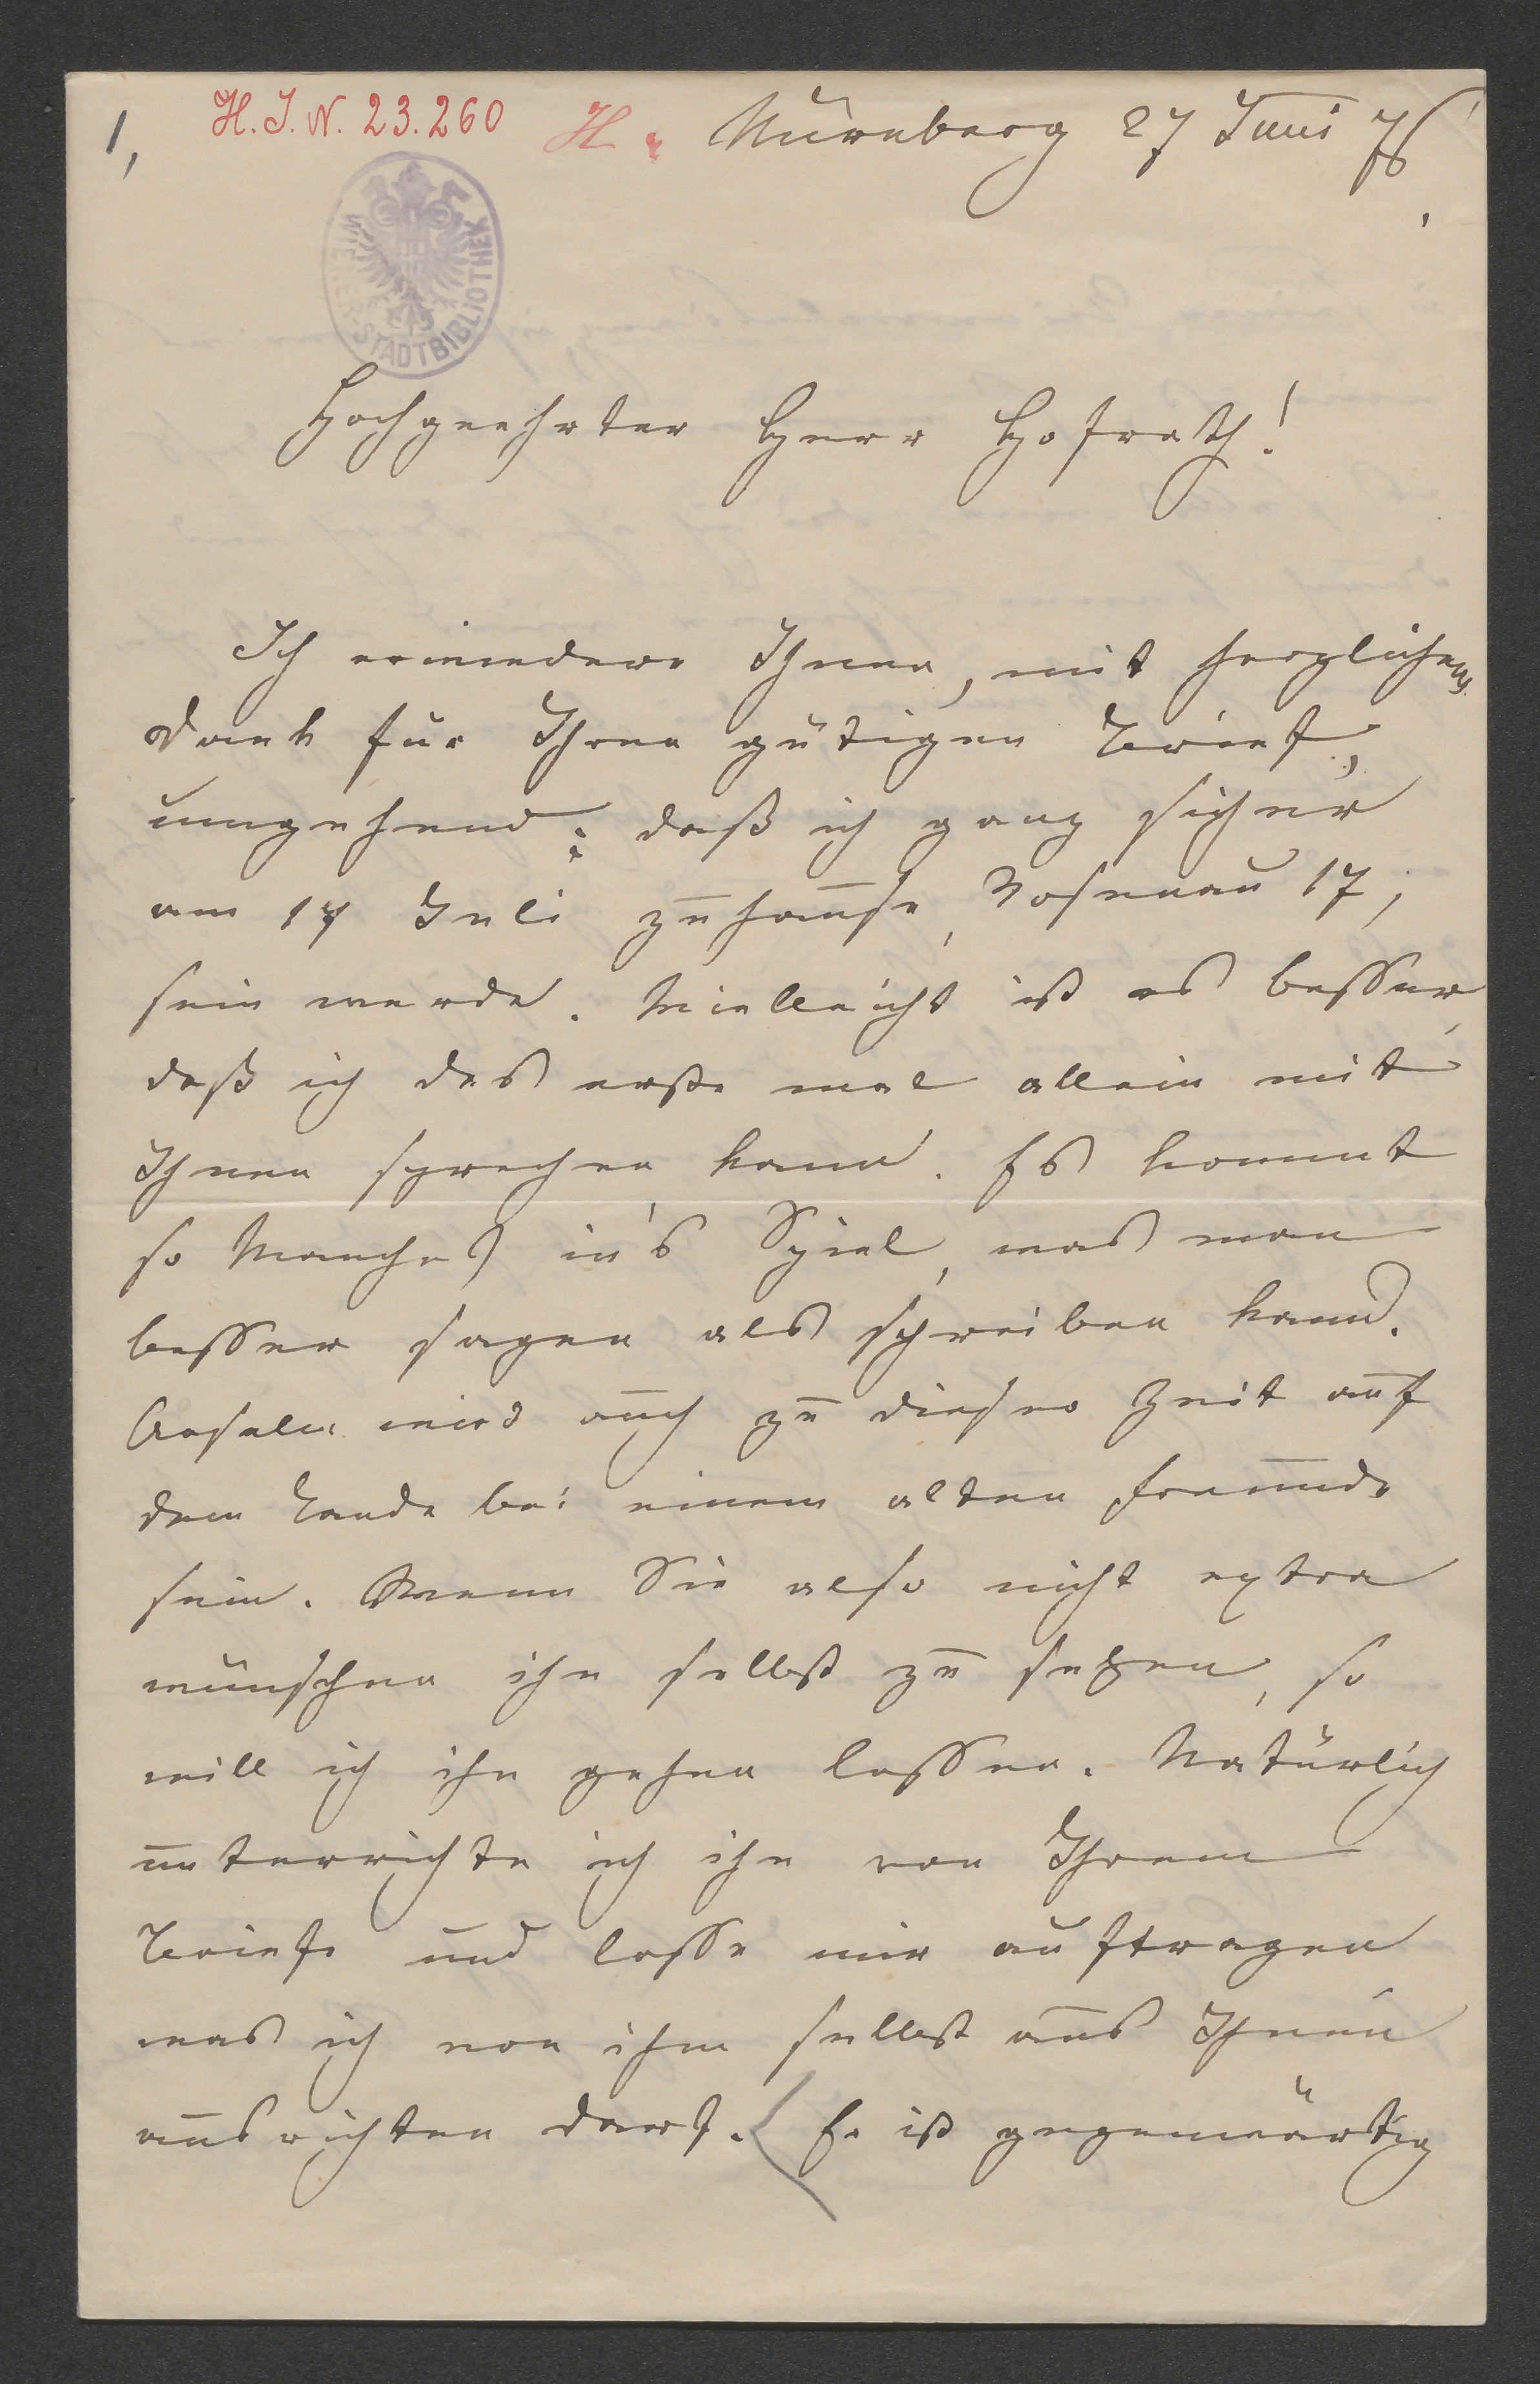 1,
H. I. N. 23.260
H.
Nürnberg 27 Juni 76
WIENER-STADTBIBLIOTHEK
Hochgeehrter Herr Hofrath!
Ich erwiedere Ihnen, mit herzlichem
Dank für Ihren gütigen Brief,
umgehend: daß ich ganz sicher
am 14 Juli zuhause, Rosenau 17,
sein werde. Vielleicht ist es besser,
daß ich das erste mal allein mit
Ihnen sprechen kann. Es kommt
so Manches in's Spiel, was man
besser sagen als schreiben kann.
Anselm wird auch zu dieser Zeit auf
dem Lande bei einem alten Freunde
sein. Wenn Sie also nicht extra
wünschen ihn selbst zu sehen, so
will ich ihn gehen lassen. Natürlich
unterrichte ich ihn von Ihrem
Briefe und lasse mir auftragen
was ich von ihm selbst aus Ihnen
ausrichten darf. Er ist gegenwärtig